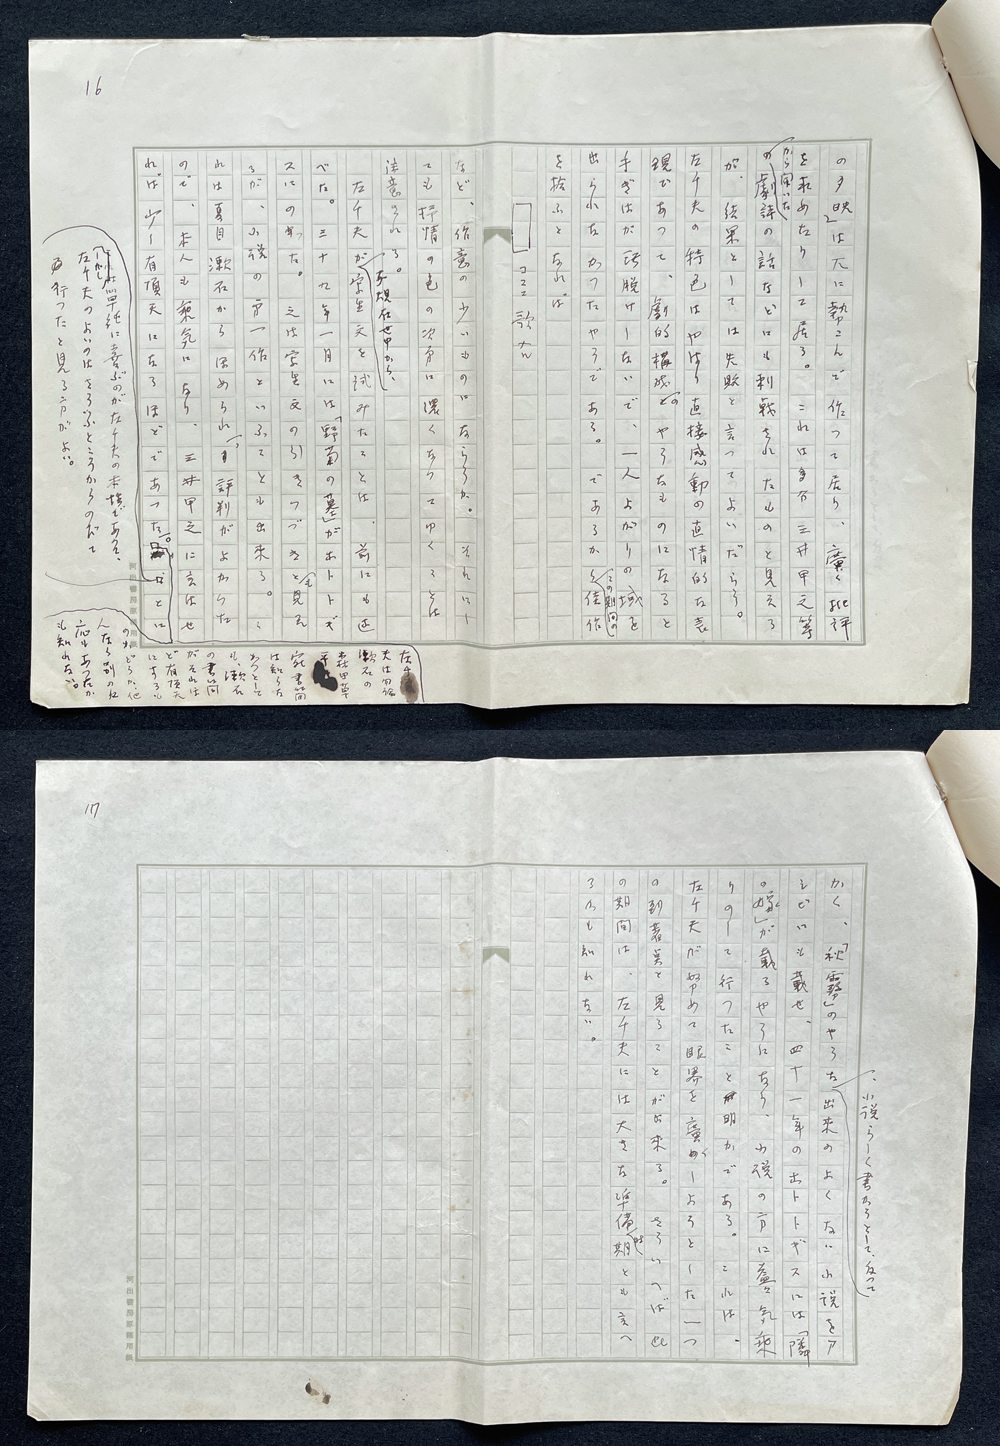 16
の夕映」は大に勢こんで作つて居り、廣く批評
を求めたりして居る。これは多分三井甲之等
から聞いた
の劇詩の話などにも刺戟されたものと見える
が、結果としては失敗と言つてよいだらう。
左千夫の特色はやはり直接感動の直情的な表
現であつて、劇的構成のやうなものになると
手ぎはが垢脱けしないで、一人よがりの域を
出られなかつたやうである。であるから佳作
この期間の
を拾ふとなれば
ココニ歌入ル
など、作意の少いものにならうか。それにし
ても抒情の色の次第に濃くなつてゆくことは
注意される。
子規在世中から、
左千夫が写生文を試みたことは、前にも述
べた。三十九年一月には「野菊の墓」がホトトギ
スにのつた。之は写生文の引きつづきとも見え
るが、小説の第一作といふことも出来る。こ
れは夏目漱石から ほめられ、評判がよかつた
ので、本人も乗気になり、三井甲之に言はせ
れば少し有頂天になるほどであつた。
左千夫は勿論漱石の森田草平宛書簡は知らなかつたとしても、漱石の書簡がそれほど有頂天にするものかどうか、他人なら別の反応もあつたかも知れない。
単純に喜ぶのが左千夫の本領であつて、
左千夫のよいのはさういふところからのびて
行つたと見る方がよい。
とに
河出書房原稿用紙
17
かく、「秋霧」のやうな出来のよくない小説をア
、小説らしく書かうとして、反つて
ララギにも載せ、四十一年のホトトギスには「隣
の嫁」が載るやうになり、小説の方に益々気乗
りのして行つたこと明かである。これは、
左千夫が努めて眼界を廣くしようとした一つ
の到着点と見ることが出来る。さういへば此
の期間は、左千夫には大きな準備時期とも言へ
るかも知れない。
河出書房原稿用紙